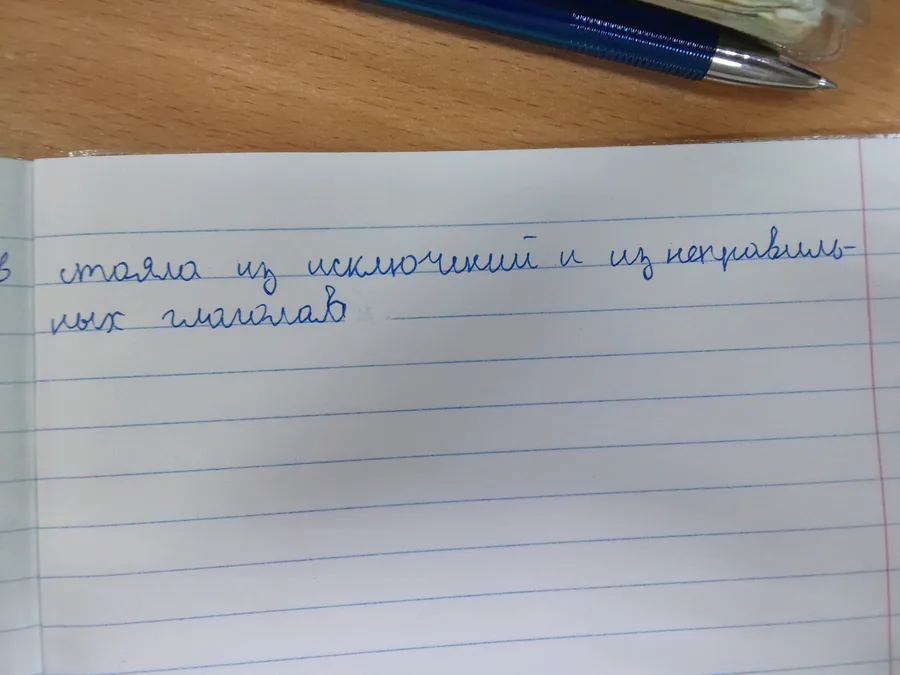 в стояла из исключений и из неправиль-
ных глаголав